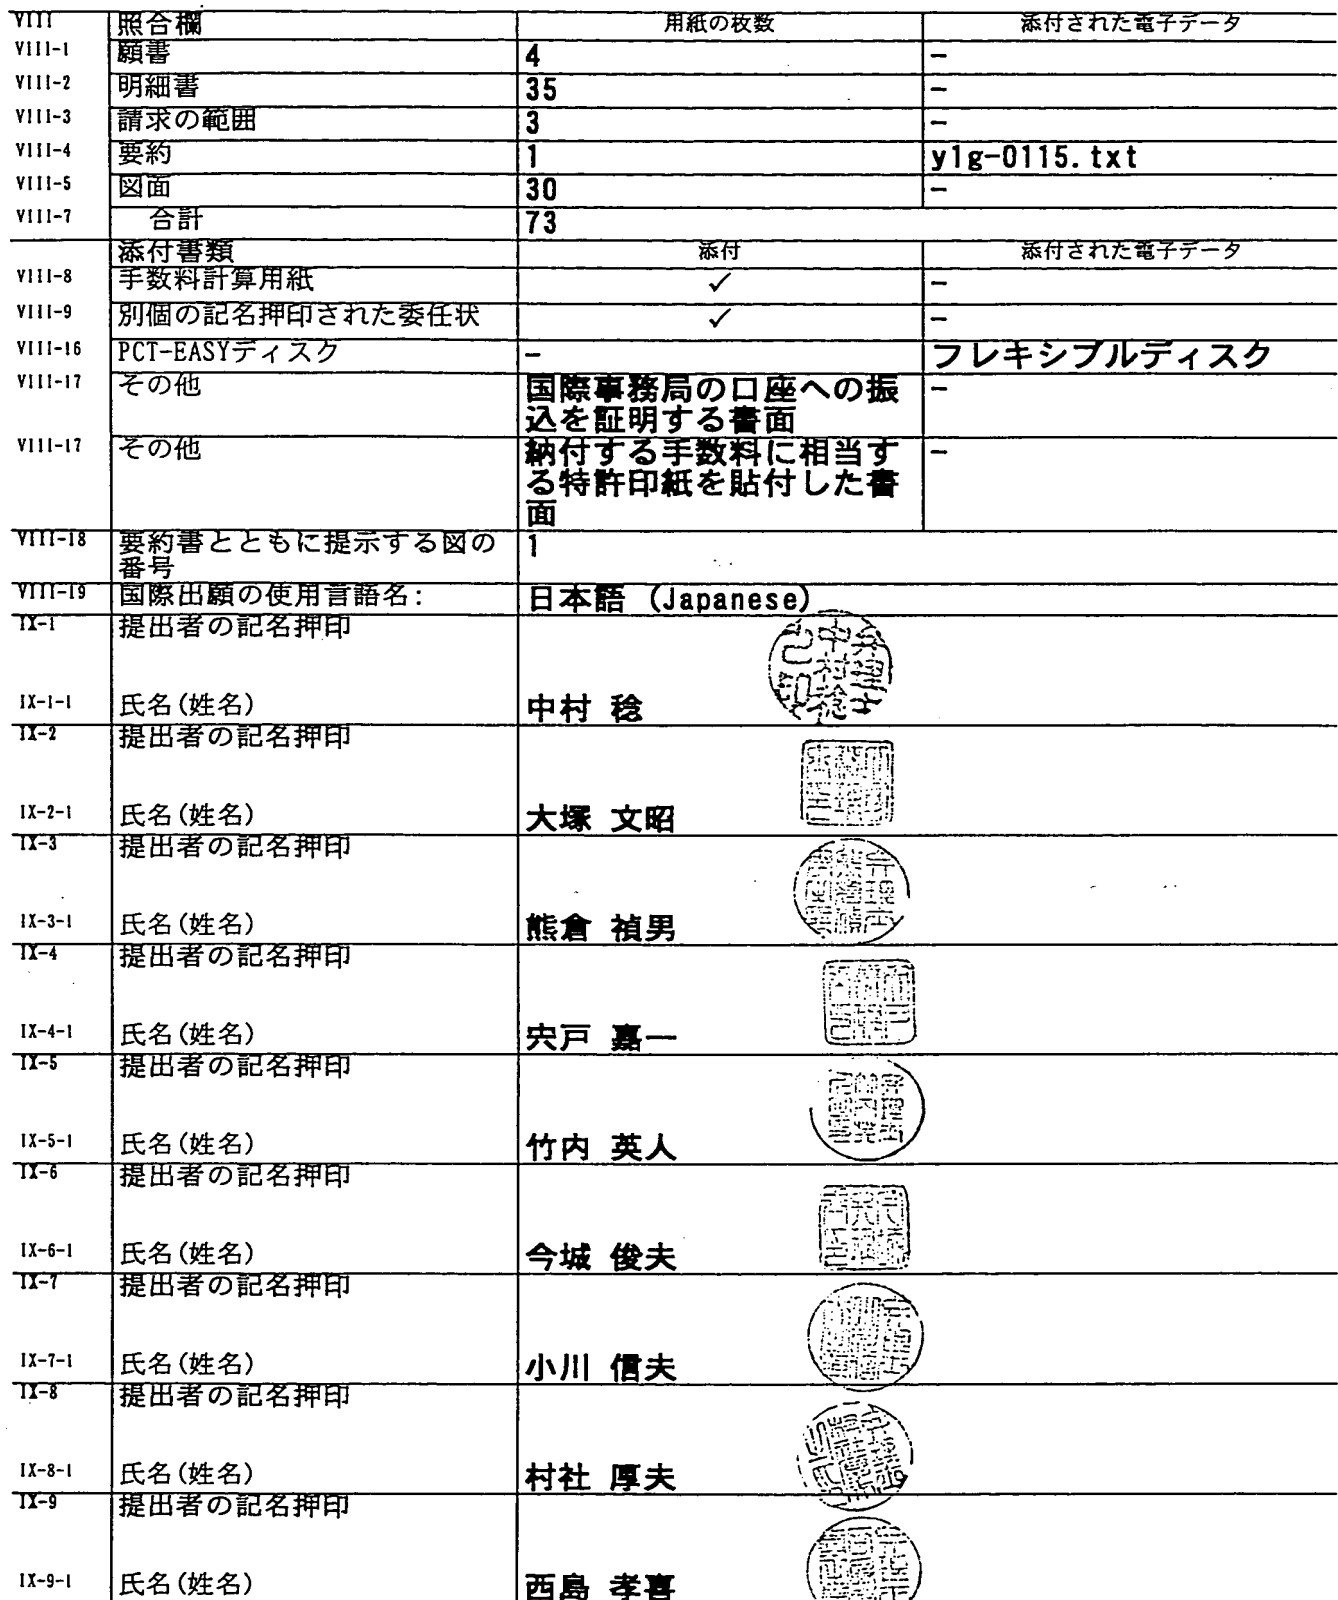 VIII 照合欄 用紙の枚数 添付された電子データ
VIII-1 願書 4 -
VIII-2 明細書 35 -
VIII-3 請求の範囲 3 -
VIII-4 要約 1 y1g-0115.txt
VIII-5 図面 30 -
VIII-7 合計 73
添付書類 添付 添付された電子データ
VIII-8 手数料計算用紙 ✓ -
VIII-9 別個の記名押印された委任状 ✓ -
VIII-16 PCT-EASYディスク - フレキシブルディスク
VIII-17 その他 国際事務局の口座への振 -
込を証明する書面
VIII-17 その他 納付する手数料に相当す -
る特許印紙を貼付した書
面
VIII-18 要約書とともに提示する図の 1
番号
VIII-19 国際出願の使用言語名: 日本語 (Japanese)
IX-1 提出者の記名押印
IX-1-1 氏名(姓名) 中村 稔
IX-2 提出者の記名押印
IX-2-1 氏名(姓名) 大塚 文昭
IX-3 提出者の記名押印
IX-3-1 氏名(姓名) 熊倉 禎男
IX-4 提出者の記名押印
IX-4-1 氏名(姓名) 宍戸 嘉一
IX-5 提出者の記名押印
IX-5-1 氏名(姓名) 竹内 英人
IX-6 提出者の記名押印
IX-6-1 氏名(姓名) 今城 俊夫
IX-7 提出者の記名押印
IX-7-1 氏名(姓名) 小川 信夫
IX-8 提出者の記名押印
IX-8-1 氏名(姓名) 村社 厚夫
IX-9 提出者の記名押印
IX-9-1 氏名(姓名) 西島 孝喜